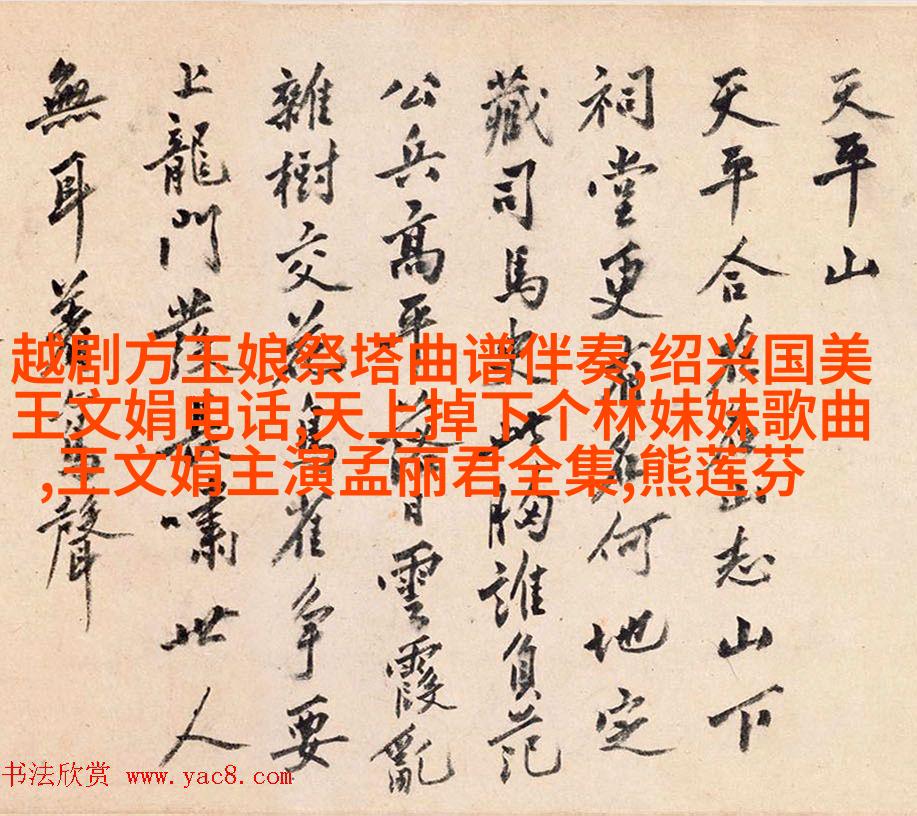 天平山
天平合山志山下
祠堂更名何地定
藏司馬史此胸誰負范
公兵高平日雲霞亂
雜樹交花鳥雀争要
上龍門發長嘯世人
無耳聲
越剧方玉娘祭塔曲谱伴奏,绍兴国美
王文娟电话,天上掉下个林妹妹歌曲
,王文娟主演孟丽君全集,熊莲芬
书法欣赏 www.yac8.com